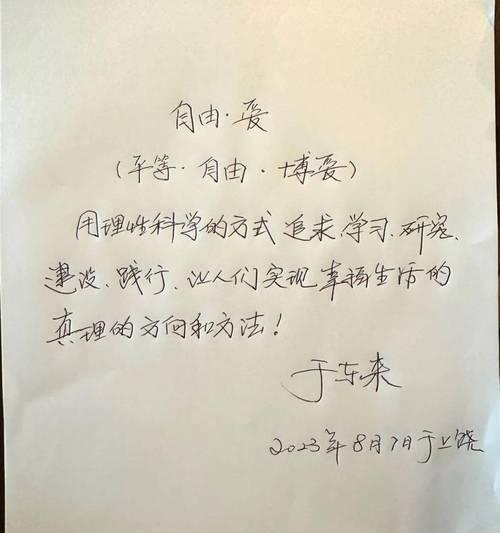 自由·爱
(平等·自由·博爱)
用理性科学的方式 追求、学习、研究、
建设、践行、让人们实现幸福生活的
真理的方向和方法！
于东来
2023年8月7日于上饶